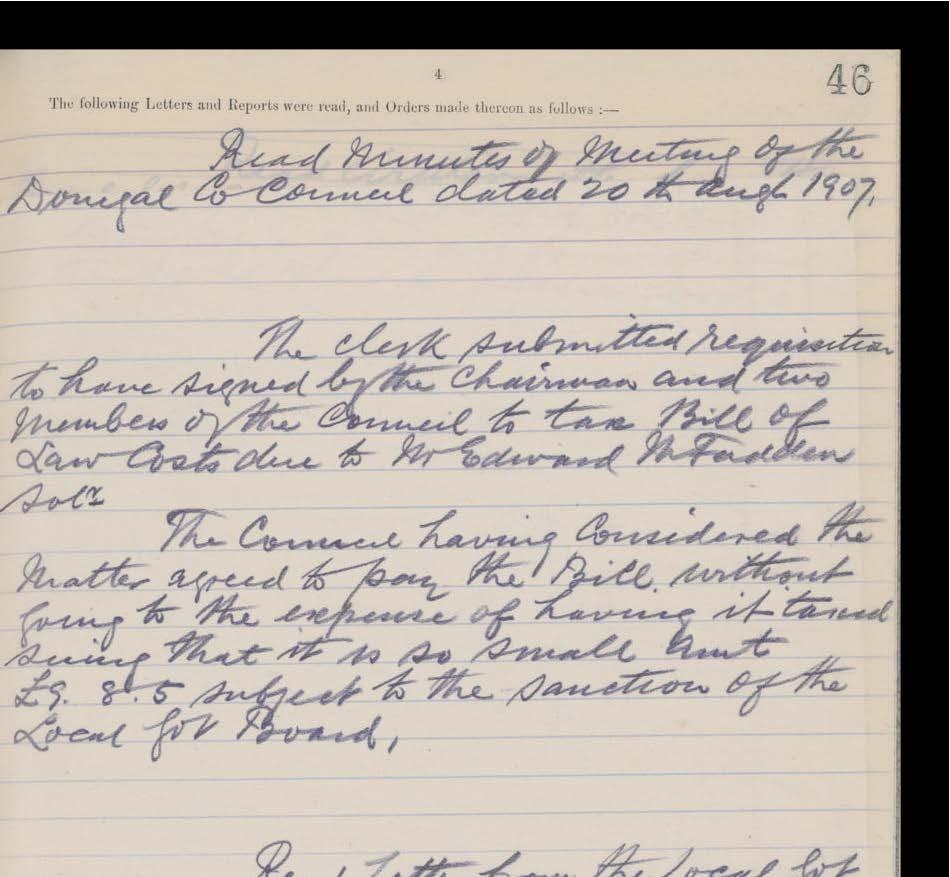 4
46
The following Letters and Reports were read, and Orders made thereon as follows :—
Read Minutes of Meeting of the
Donegal Co Council dated 20th Augt 1907.
The clerk submitted requisition
to have signed by the Chairman and two
Members of the Council to tax Bill of
Law Costs due to Mr Edward McFadden
Solr
The Council having Considered the
Matter agreed to pay the Bill without
going to the expense of having it taxed
seeing that it is so small Amt
£9. 8. 5 subject to the sanction of the
Local Govt Board,
Read letter from the Local Govt